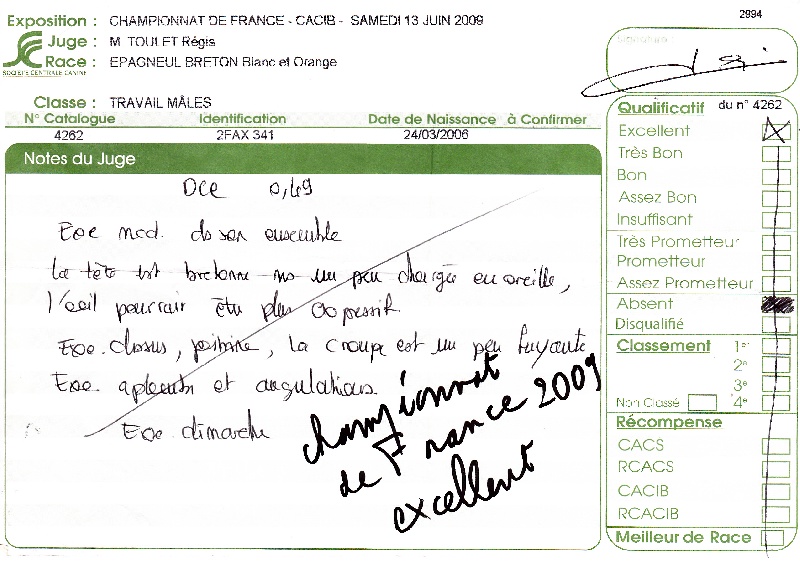 2994
Exposition : CHAMPIONNAT DE FRANCE - CACIB - SAMEDI 13 JUIN 2009
Juge : M TOULET Régis
Race : EPAGNEUL BRETON Blanc et Orange
SOCIÉTÉ CENTRALE CANINE
Classe : TRAVAIL MÂLES
N° Catalogue Identification Date de Naissance à Confirmer
4262 2FAX 341 24/03/2006
Notes du Juge
0,49
Exc mod. ds son ensemble
la tête est bretonne ms un peu chargée en oreille,
l'oeil pourrait être plus expressif.
Exc. dessus, poitrine, la croupe est un peu fuyante
Exc aplombs et angulations
Exc démarche
championnat
de France 2009
excellent
Signature :
Qualificatif du n° 4262
Excellent
Très Bon
Bon
Assez Bon
Insuffisant
Très Prometteur
Prometteur
Assez Prometteur
Absent
Disqualifié
Classement 1er
2e
3e
Non Classé 4e
Récompense
CACS
RCACS
CACIB
RCACIB
Meilleur de Race